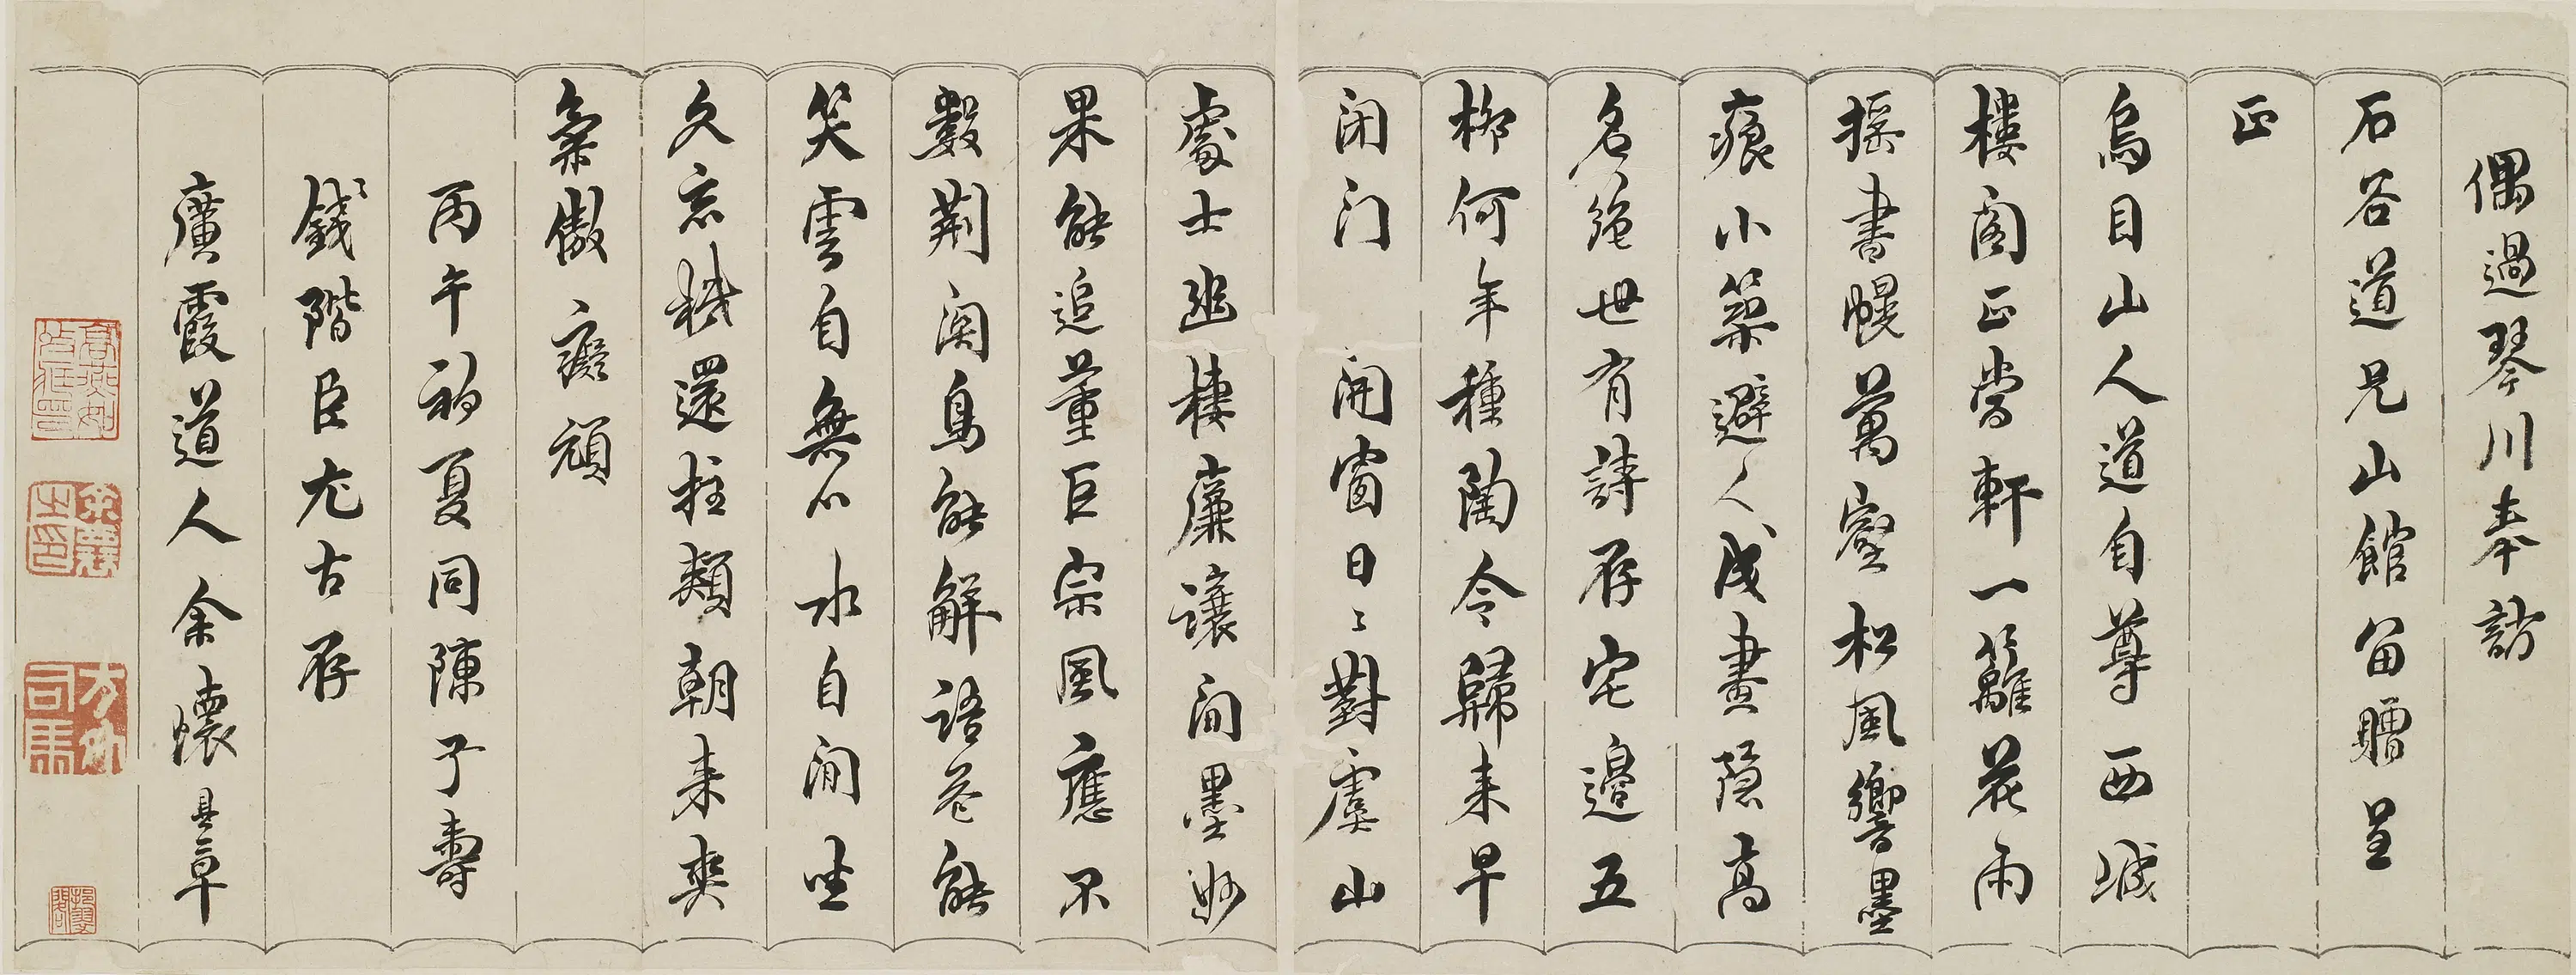 偶過琴川奉訪
石谷道兄山館留贈呈
正
烏目山人道自尊西城
樓閣正當軒一籬花雨
搖書幌萬壑松風響墨
痕小築避人成畫隱高
名絕世有詩存宅邊五
柳何年種陶令歸来早
閉门 開窗日〻對虞山
處士幽棲廉讓間墨妙
果能追董巨宗風應不
數荆関鳥能解語花能
笑雲自無心水自閒坐
久忘機還拄頰朝来爽
氣傲癡頑
丙午初夏同陳子壽
錢階臣尤古存
廣霞道人余懷具草